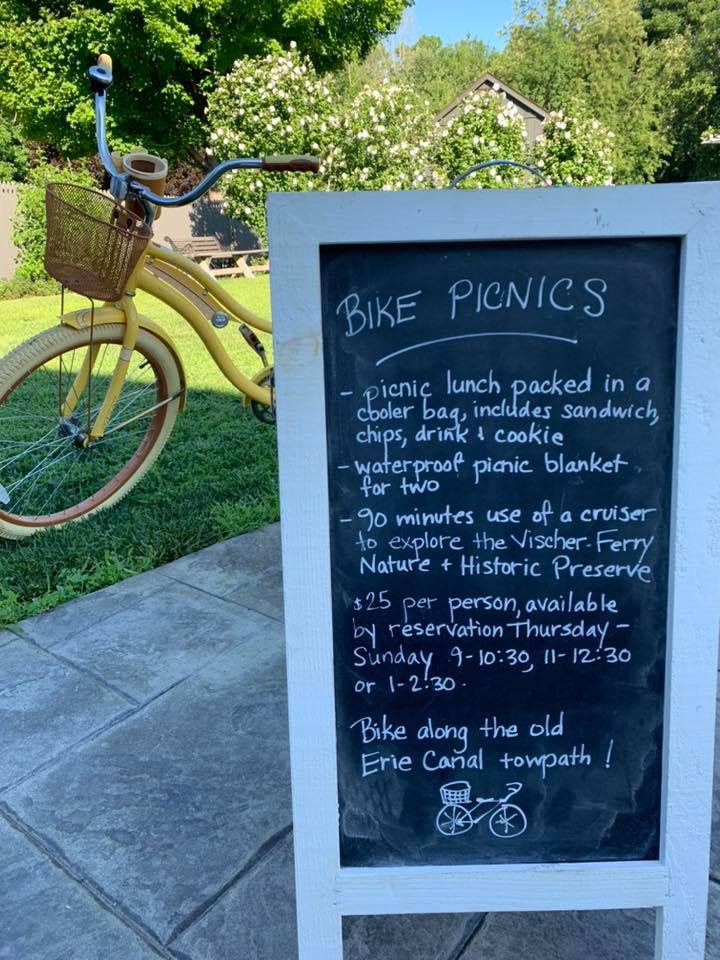 BIKE PICNICS
- picnic lunch packed in a
cooler bag, includes sandwich,
chips, drink & cookie
- waterproof picnic blanket
for two
- 90 minutes use of a cruiser
to explore the Vischer Ferry
Nature + Historic Preserve
$25 per person, available
by reservation Thursday -
Sunday 9-10:30, 11-12:30
or 1-2:30.
Bike along the old
Erie Canal towpath !